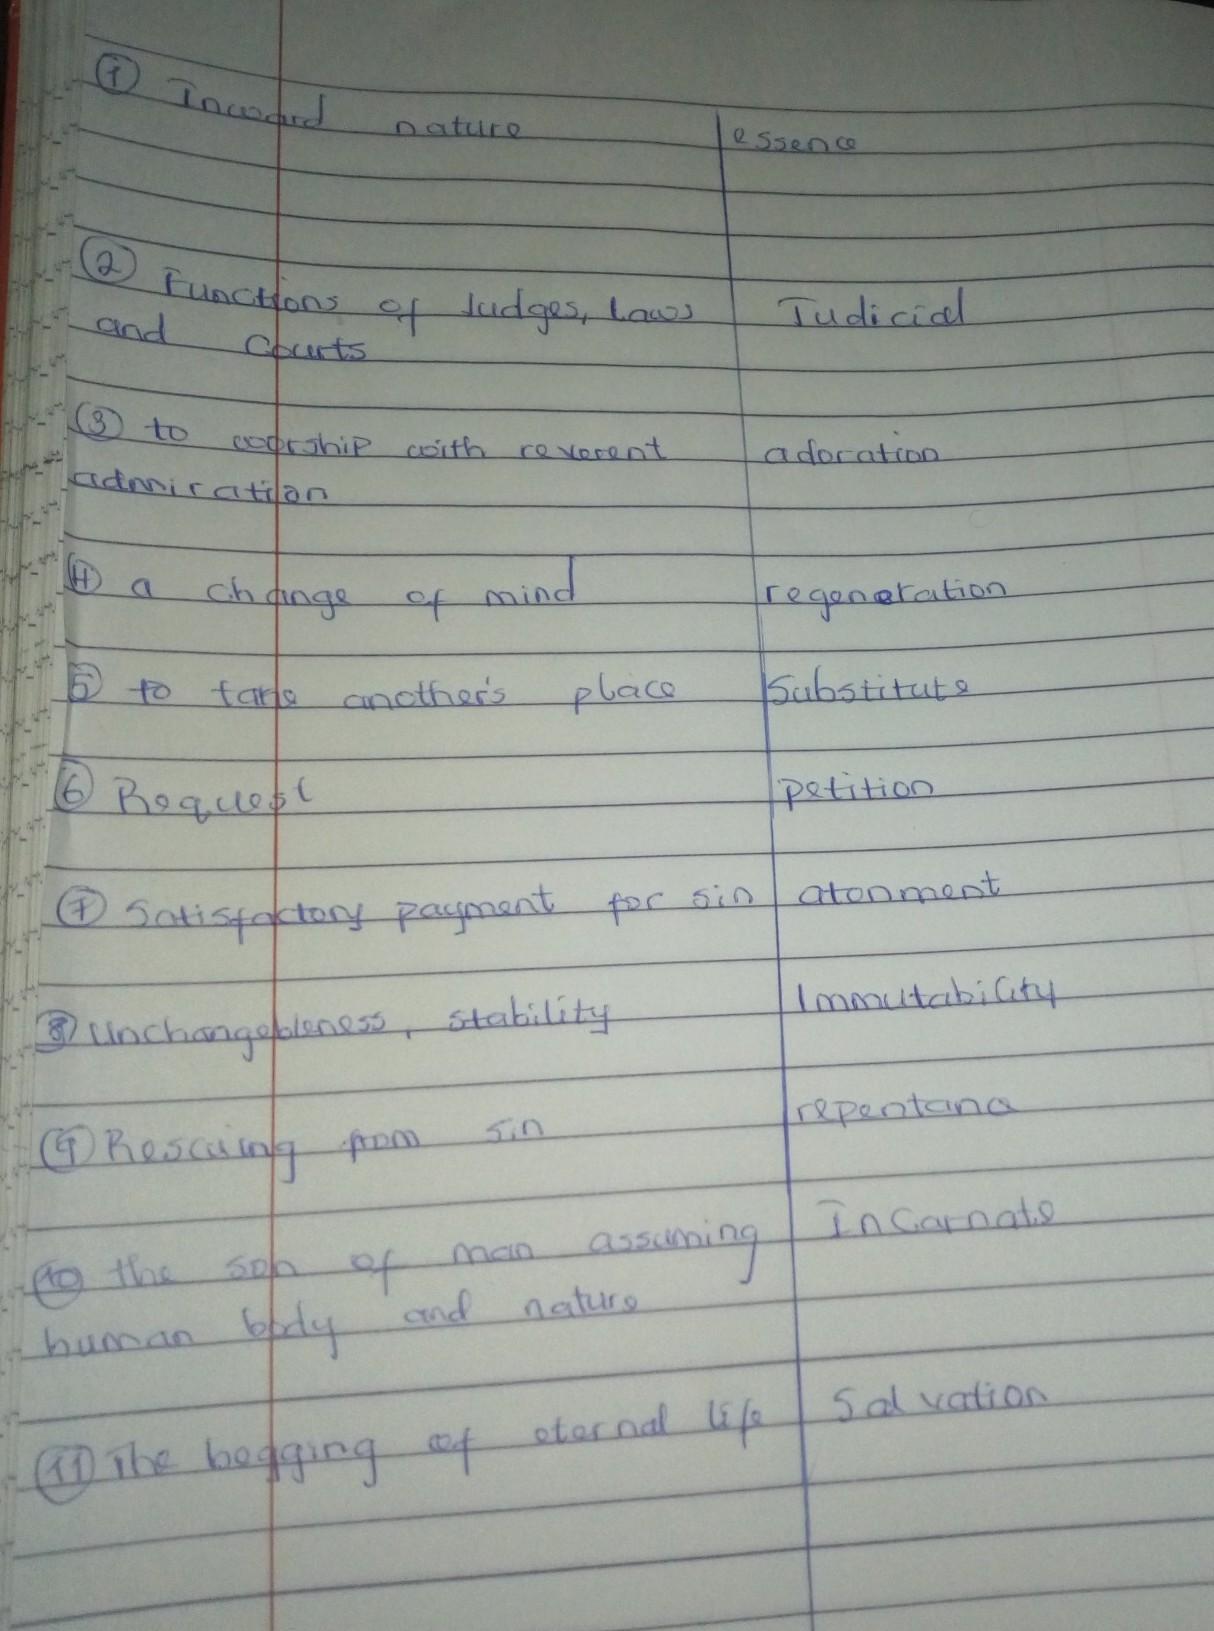 ① Inward nature essence
② Functions of Judges, Laws Judicial
and Courts
③ to worship with reverent adoration
admiration
④ a change of mind regeneration
⑤ to take another's place Substitute
⑥ Request petition
⑦ Satisfactory payment for sin atonment
⑧ Unchangebleness, stability Immutability
⑨ Rescuing from sin repentanc
⑩ the son of man assuming Incarnate
human body and nature
⑪ The begging of eternal life Salvation